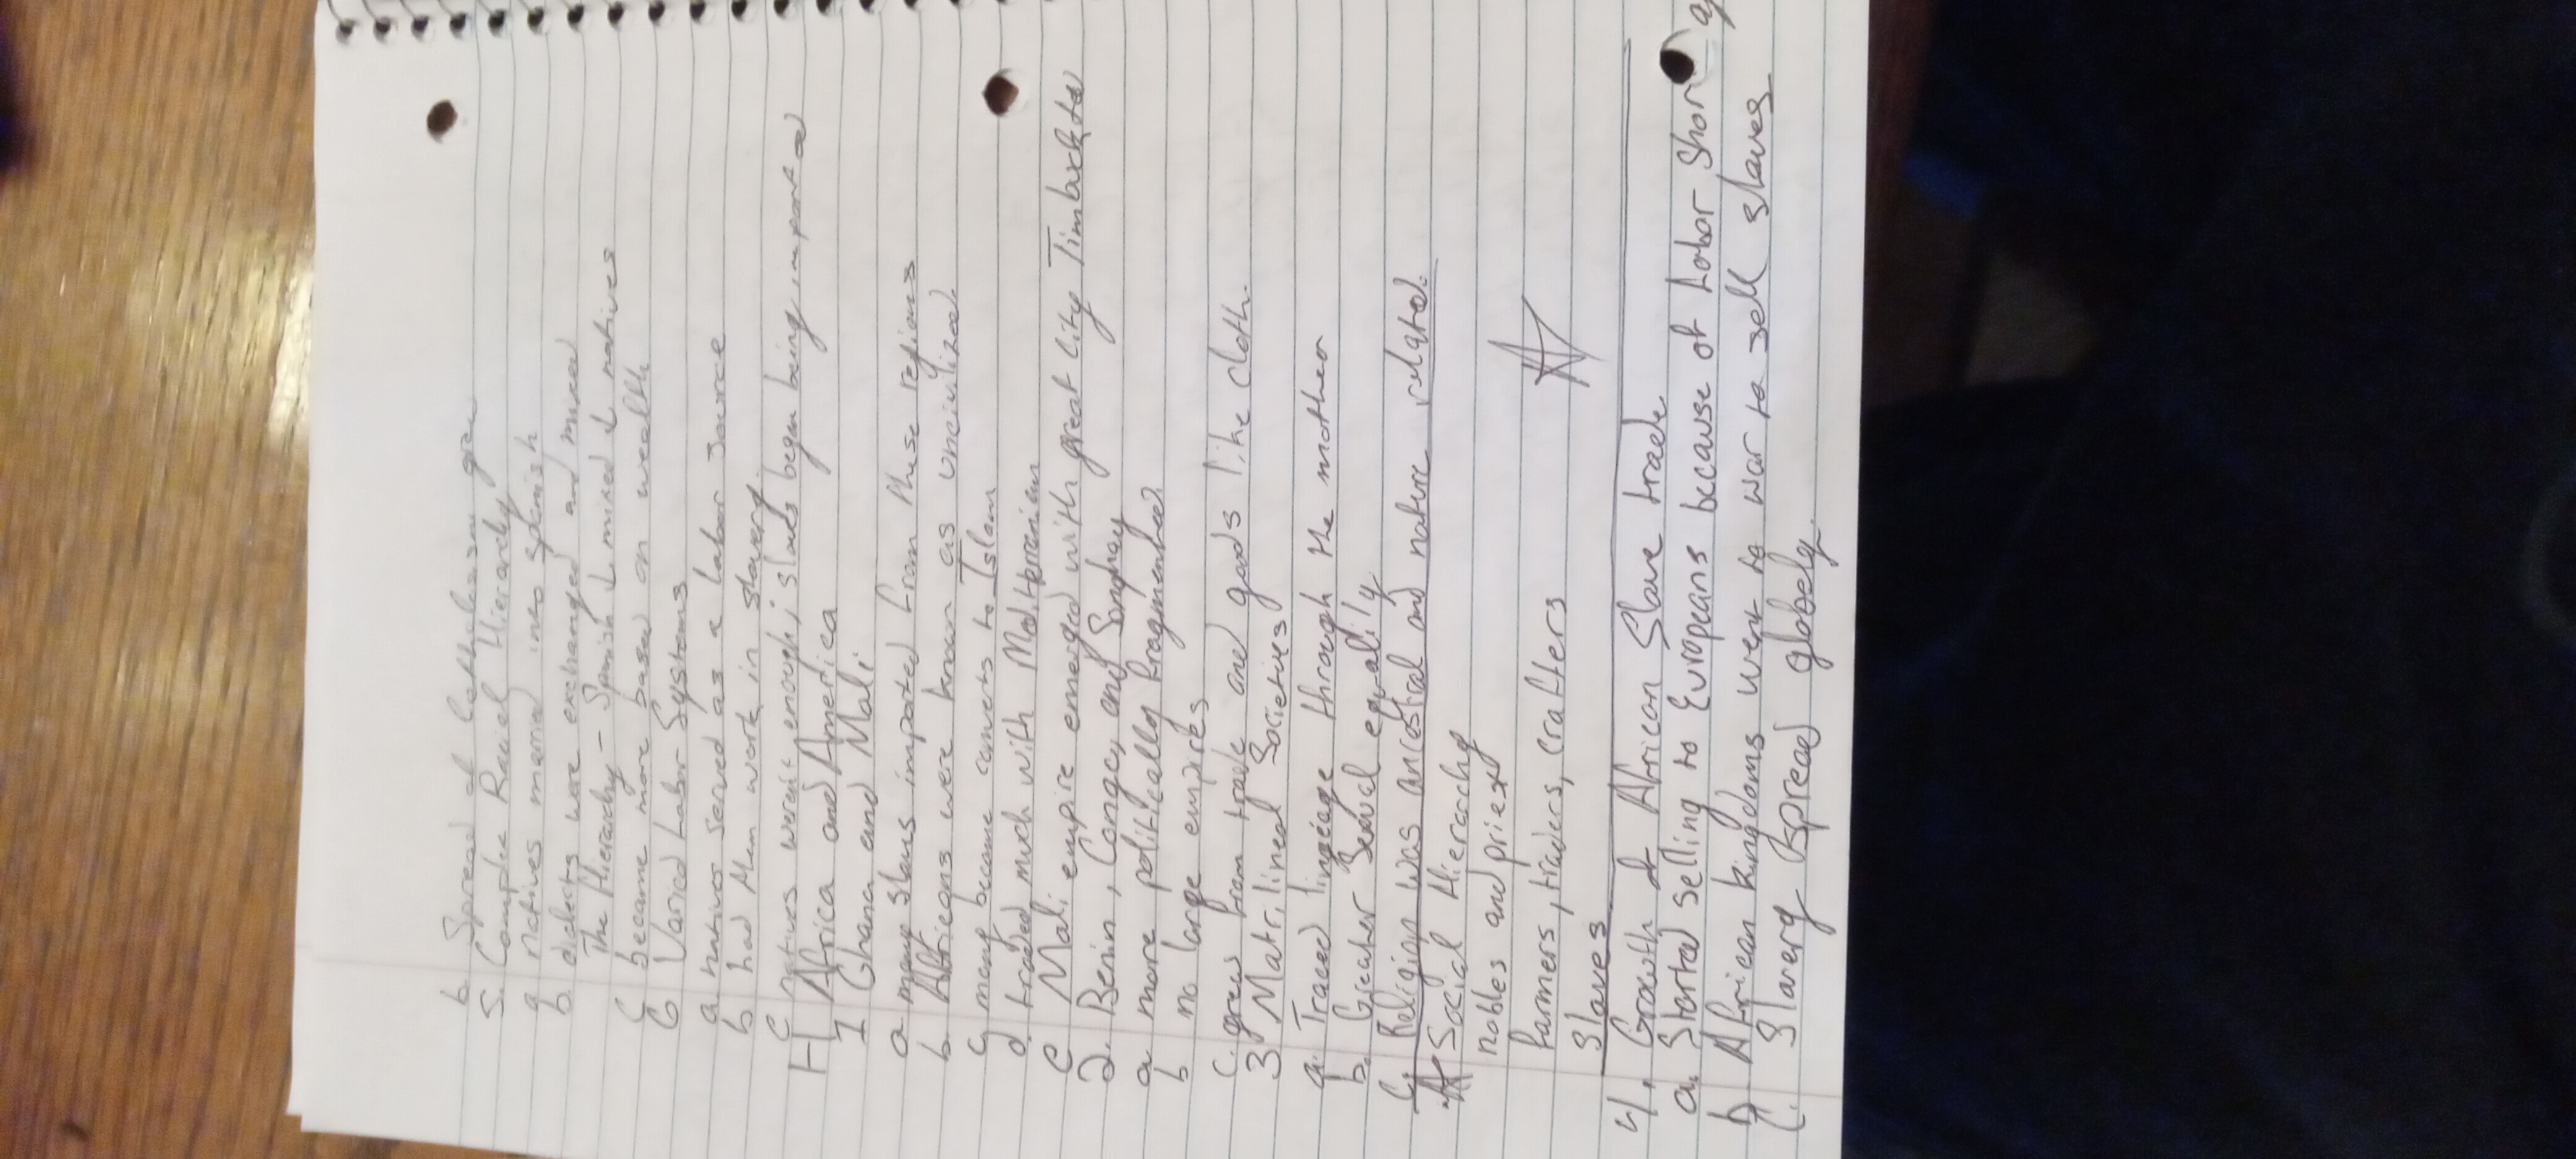 b. Spread of Catholicism grew
5. Complex Racial Hierarchy
a natives married into spanish
b. dialects were exchanged and mixed
The Hierarchy - Spanish ↓ mixed ↓ natives
C became more based on wealth
6 Varied Labor Systems
a natives served as a labor source
b had them work in slavery.
C natives weren't enough; slaves began being imported
H Africa and America
1 Ghana and Mali
a many slaves imported from these regions
b. Africans were known as uncivilized.
C many became converts to Islam
d. traded much with Mediterranian
C Mali empire emerged with great city Timbucktu
2. Benin, Congo, and Songhay
a more politically fragmented
b no large empires
c. grew from trade and goods like cloth.
3 Matrilineal Societies
a. Traced lineage through the mother
b. Greater Sexual equality
C. Religion was ancestral and nature related.
Social Hierarchy
nobles and priest
farmers, traders, crafters
Slaves
4. Growth of African Slave trade
a. Started selling to Europeans because of Labor Short
b African kingdoms went to war to sell slaves
C. Slavery spread globely.